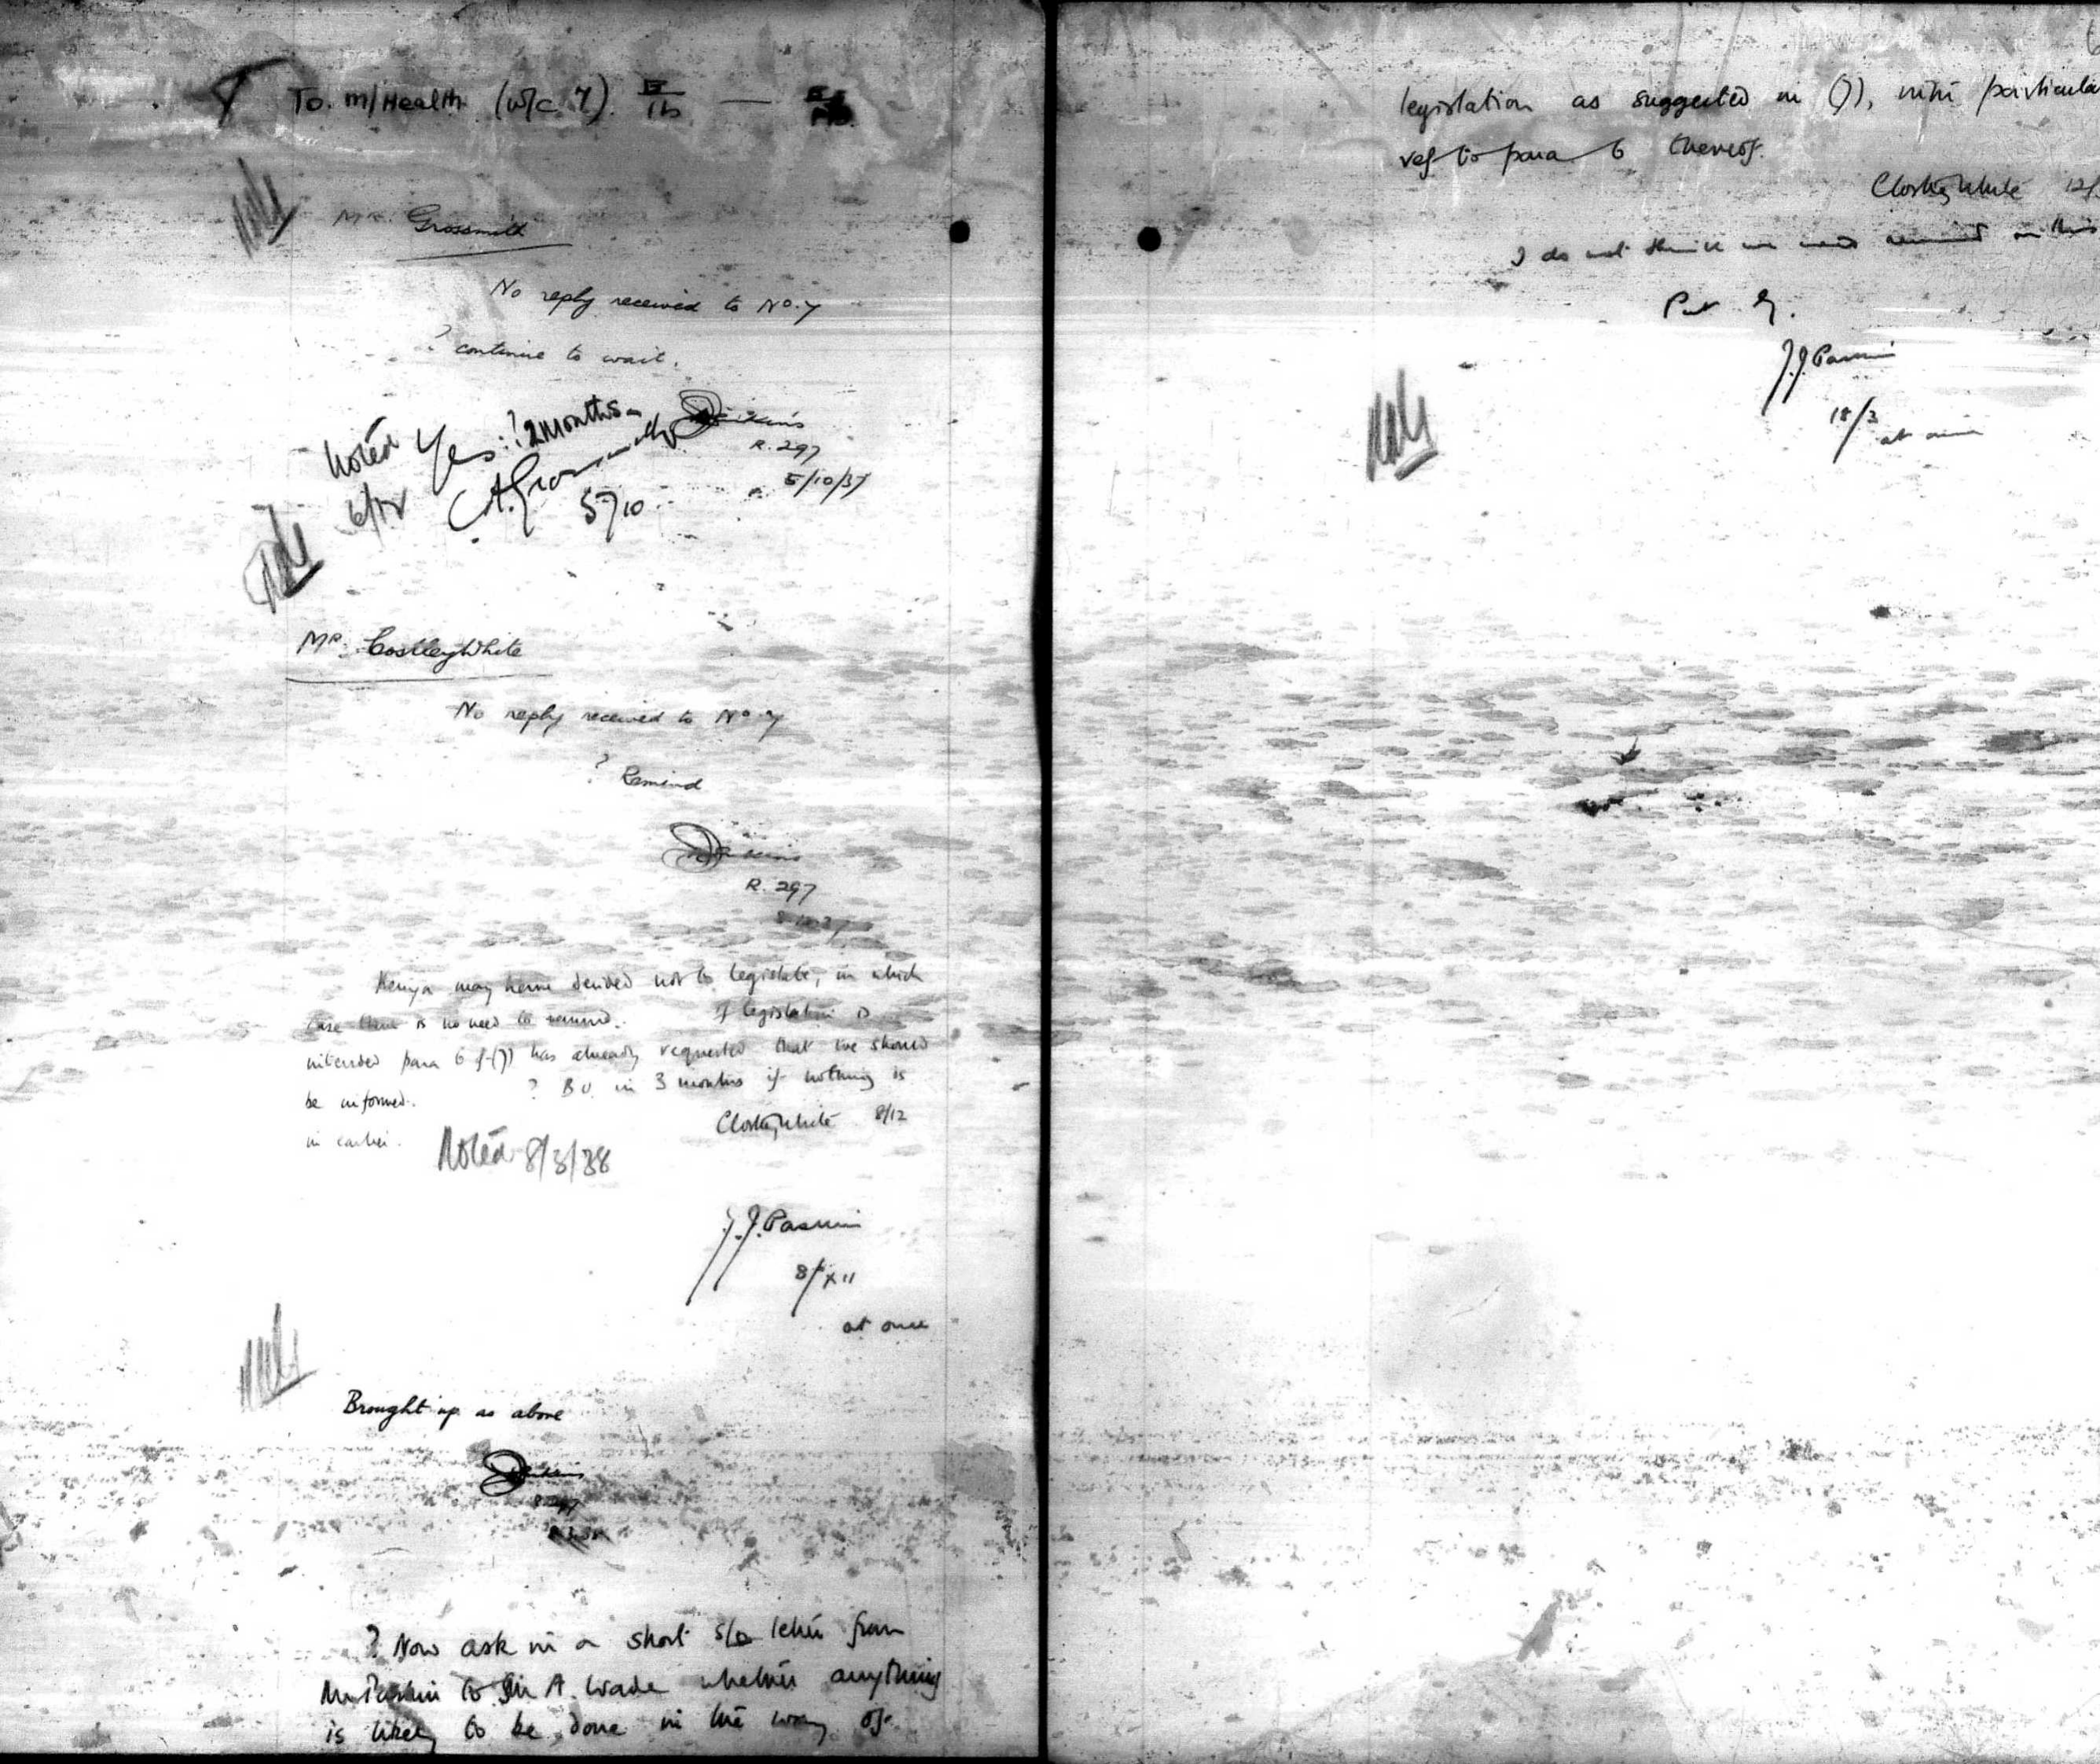 To. M/Health (w/c 7).
Mr. Grossmith
No reply received to No. 7
? continue to wait.
R. 297
5/10/37
Yes: ? 2 months
C.A. Grossmith
5/10
Noted
6/12
Mr. Costley White
No reply received to No. 7
? Remind
R. 297
8.12.37
Kenya may have decided not to legislate, in which
case there is no need to remind. If legislation is
intended para 6 of (7) has already requested that we should
be informed. ? B.U. in 3 months if nothing is
in earlier.
CCostleyWhite 8/12
Noted 8/3/38
J.J. Paskin
8/XII
at once
Brought up as above
R 297
? Now ask in a short s/o letter from
Mr Paskin to Sir A. Wade whether anything
is likely to be done in the way of
legislation as suggested in (7), with particular
ref to para 6 thereof.
CCostleyWhite 12/
I do not think we need remind on this
Put by.
J.J. Paskin
18/3
at once